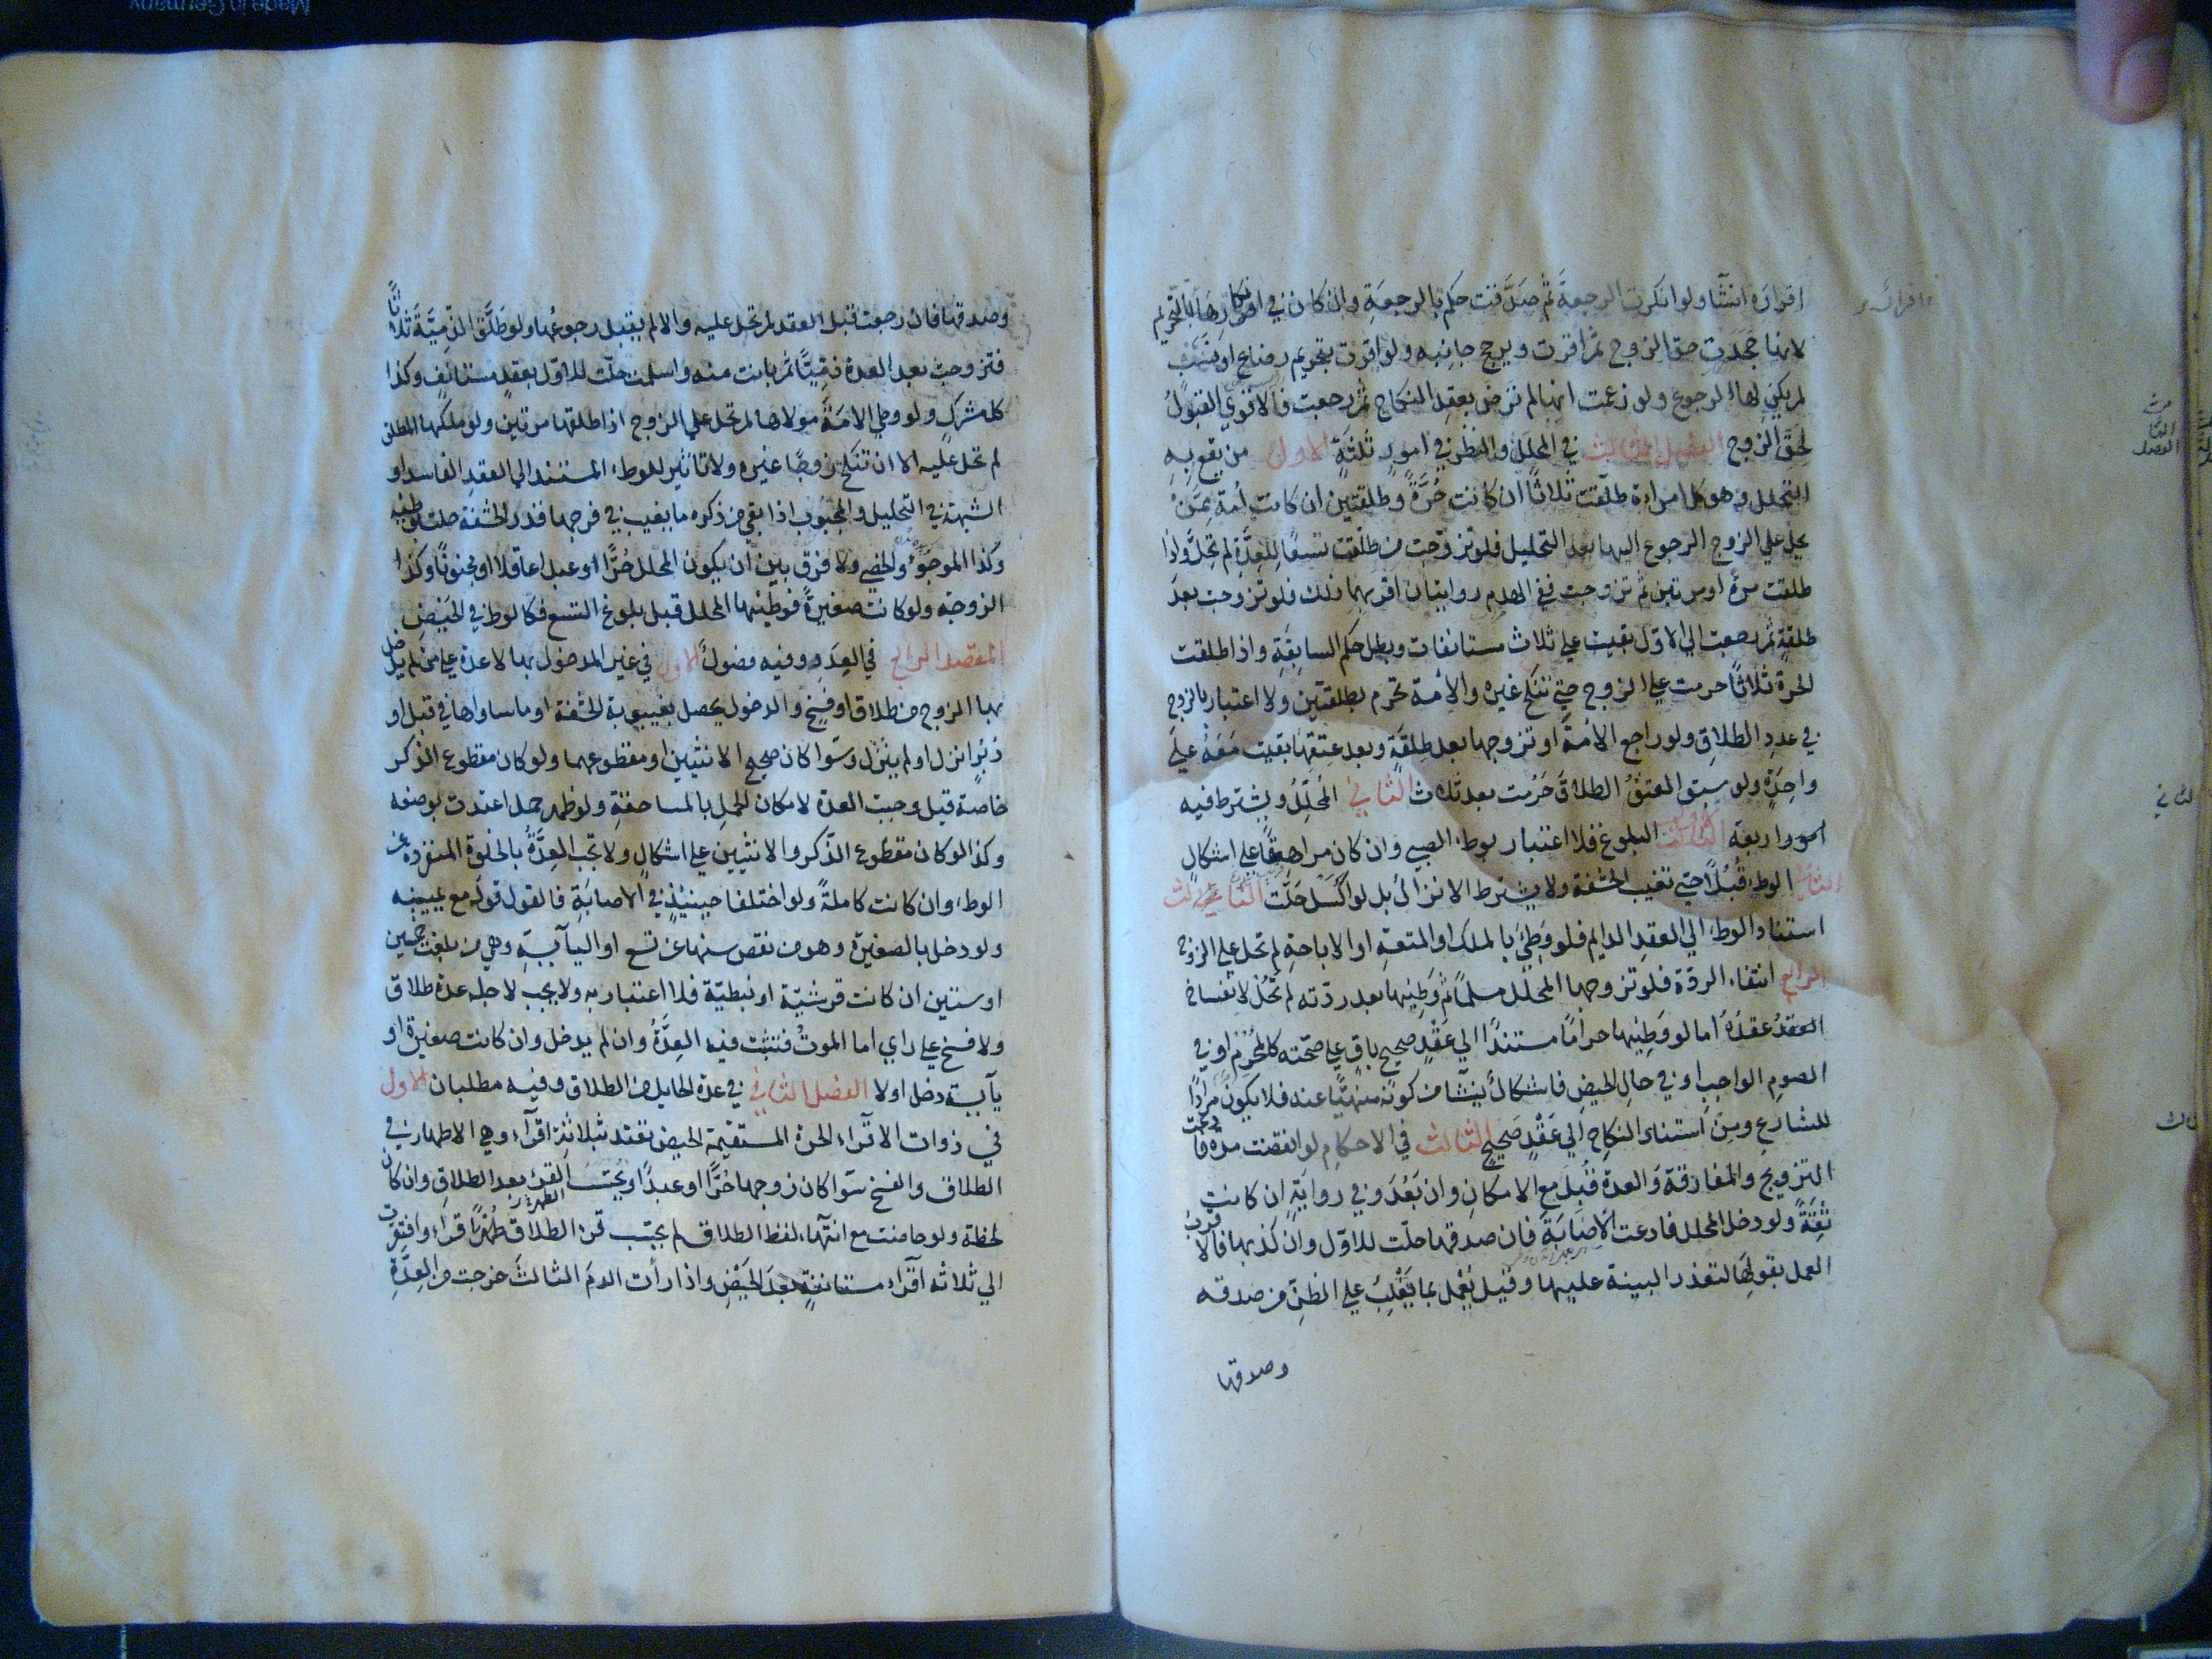 اقراره انشاء ولو انكرت الرجعة ثم صدقت حكم بالرجعة وان كان في انكارها اقرارها بالتحريم
لانها جحدت حق الزوج ثم اقرت ويرجح جانبه ولو اقرت بتحريم رضاع او نسب
لم يكن لها الرجوع ولو زعمت انها لم ترض بعقد النكاح ثم رجعت فالاقوي القبول
لحق الزوج الفصل الثالث في المحلل والنظر في امور ثلثة الاول من يقع به
التحلل وهو كل امراءة طلقت ثلاثا ان كانت حرة وطلقتين ان كانت امة ممن
يحل علي الزوج الرجوع اليها بعد التحليل فلو تزوجت من طلقت تسعا للعدة لم تحل ولو
طلقت مرة او مرتين ثم تزوجت ففي الهدم روايتان اقربهما ذلك فلو تزوجت بعد
طلقة ثم رجعت الي الاول بقيت علي ثلاث مستانفات وبطل حكم السابقة واذا طلقت
الحرة ثلاثا حرمت علي الزوج حتي تنكح غيره والامة تحرم بطلقتين ولا اعتبار بالزوج
في عدد الطلاق ولو راجع الامة او تزوجها بعد طلقة وبعد عتقها بقيت معه علي
واحدة ولو سبق العتق الطلاق حرمت بعد ثلاث الثاني المحلل ويشترط فيه
امور اربعة البلوغ فلا اعتبار بوطء الصبي وان كان مراهقا علي اشكال
الثاني الوطء قبلا حتي تغيب الحشفة ولا يشترط الانزال بل لو اكسل حلت الثالث
استناد الوطء الي العقد الدايم فلو وطئ بالملك او المتعة او الاباحة لم تحل علي الزوج
الرابع انتفاء الردة فلو تزوجها المحلل مسلما ثم وطئها بعد ردته لم تحل لانفساخ
العقد عقده اما لو وطئها حراما مستندا الي عقد صحيح باق علي صحته كالمحرم او في
الصوم الواجب او في حال الحيض فاشكال ينشا من كونه منهيا عنه فلا يكون مرادا
للشارع ومن استناد النكاح الي عقد صحيح الثالث في الاحكام لو انقضت مدة فادعت
التزويج والمفارقة والعدة قبل مع الامكان وان بعد وفي رواية ان كانت
ثقة ولو دخل المحلل فادعت الاصابة فان صدقها حلت للاول وان كذبها فالاقرب
العمل بقولها لتعذر البينة عليها وقيل يعمل بما يغلب علي الظن من صدقه
وصدقها
وصدقها فان رجعت قبل العقد لم تحل عليه والا لم يقبل رجوعها ولو طلق الذمية ثلاثا
فتزوجت بعد العدة ذميا ثم بانت منه واسلمت حلت للاول بعقد مستانف وكذا
كل مشرك ولو وطي الامة مولاها لم تحل علي الزوج اذا طلقها مرتين ولو ملكها المطلق
لم تحل عليه الا ان تنكح زوجا غيره ولا تاثير للوطء المستند الي العقد الفاسد او
الشبهة في التحليل والمجبوب اذا بقي من ذكره ما يغيب في فرجها قدر الحشفة حلت بوطئه
وكذا الموجوء والخصي ولا فرق بين ان يكون المحلل حرا او عبدا عاقلا او مجنونا وكذا
الزوجة ولو كانت صغيرة فوطئها المحلل قبل بلوغ التسع فكالوط في الحيض
المقصد الرابع في العدد وفيه فصول الاول في غير المدخول بها لا عدة علي من لم يدخل
بها الزوج من طلاق او فسخ والدخول يحصل بغيبوبة الحشفة او ما ساواها في قبل او
دبر انزل او لم ينزل وسوا كان صحيح الانثيين او مقطوعهما ولو كان مقطوع الذكر
خاصة قيل وجبت العدة لامكان الحمل بالمساحقة ولو ظهر حمل اعتدت بوضعه
وكذا لو كان مقطوع الذكر والانثيين علي اشكال ولا تجب العدة بالخلوة المنفردة عن
الوطء وان كانت كاملة ولو اختلفا حينئذ في الاصابة فالقول قوله مع يمينه
ولو دخل بالصغيرة وهو من نقص سنها عن تسع او اليآيسة وهي من بلغت خمسين
او ستين ان كانت قرشية او نبطية فلا اعتبار به ولا يجب لاجله عدة طلاق
ولا فسخ علي راي اما الموت فتثبت فيه العدة وان لم يدخل وان كانت صغيرة او
يآيسة دخل اولا الفصل الثاني في عدة الحايل من الطلاق وفيه مطلبان الاول
في ذوات الاقراء الحرة المستقيمة الحيض تعتد بثلاثة اقراء وهي الاطهار في
الطلاق والفسخ سوا كان زوجها حرا او عبدا ويحتسب الطهر القرء بعد الطلاق وان كان
لحظة ولو حاضت مع انتهاء لفظ الطلاق لم يحتسب تحت الطلاق طهرا قراء وافتقرت
الي ثلاثه اقراء مستانفة بعد الحيض واذا رأت الدم الثالث خرجت من العدة